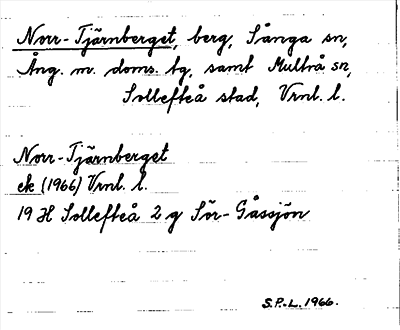 Norr-Tjärnberget, berg, Sånga sn,
Ång. m. doms. tg, samt Multrå sn,
Sollefteå stad, Vrnl. l.
Norr-Tjärnberget
ek (1966) Vrnl. l.
19 H Sollefteå 2 g Sör-Gåssjön
S.P.-L. 1966.